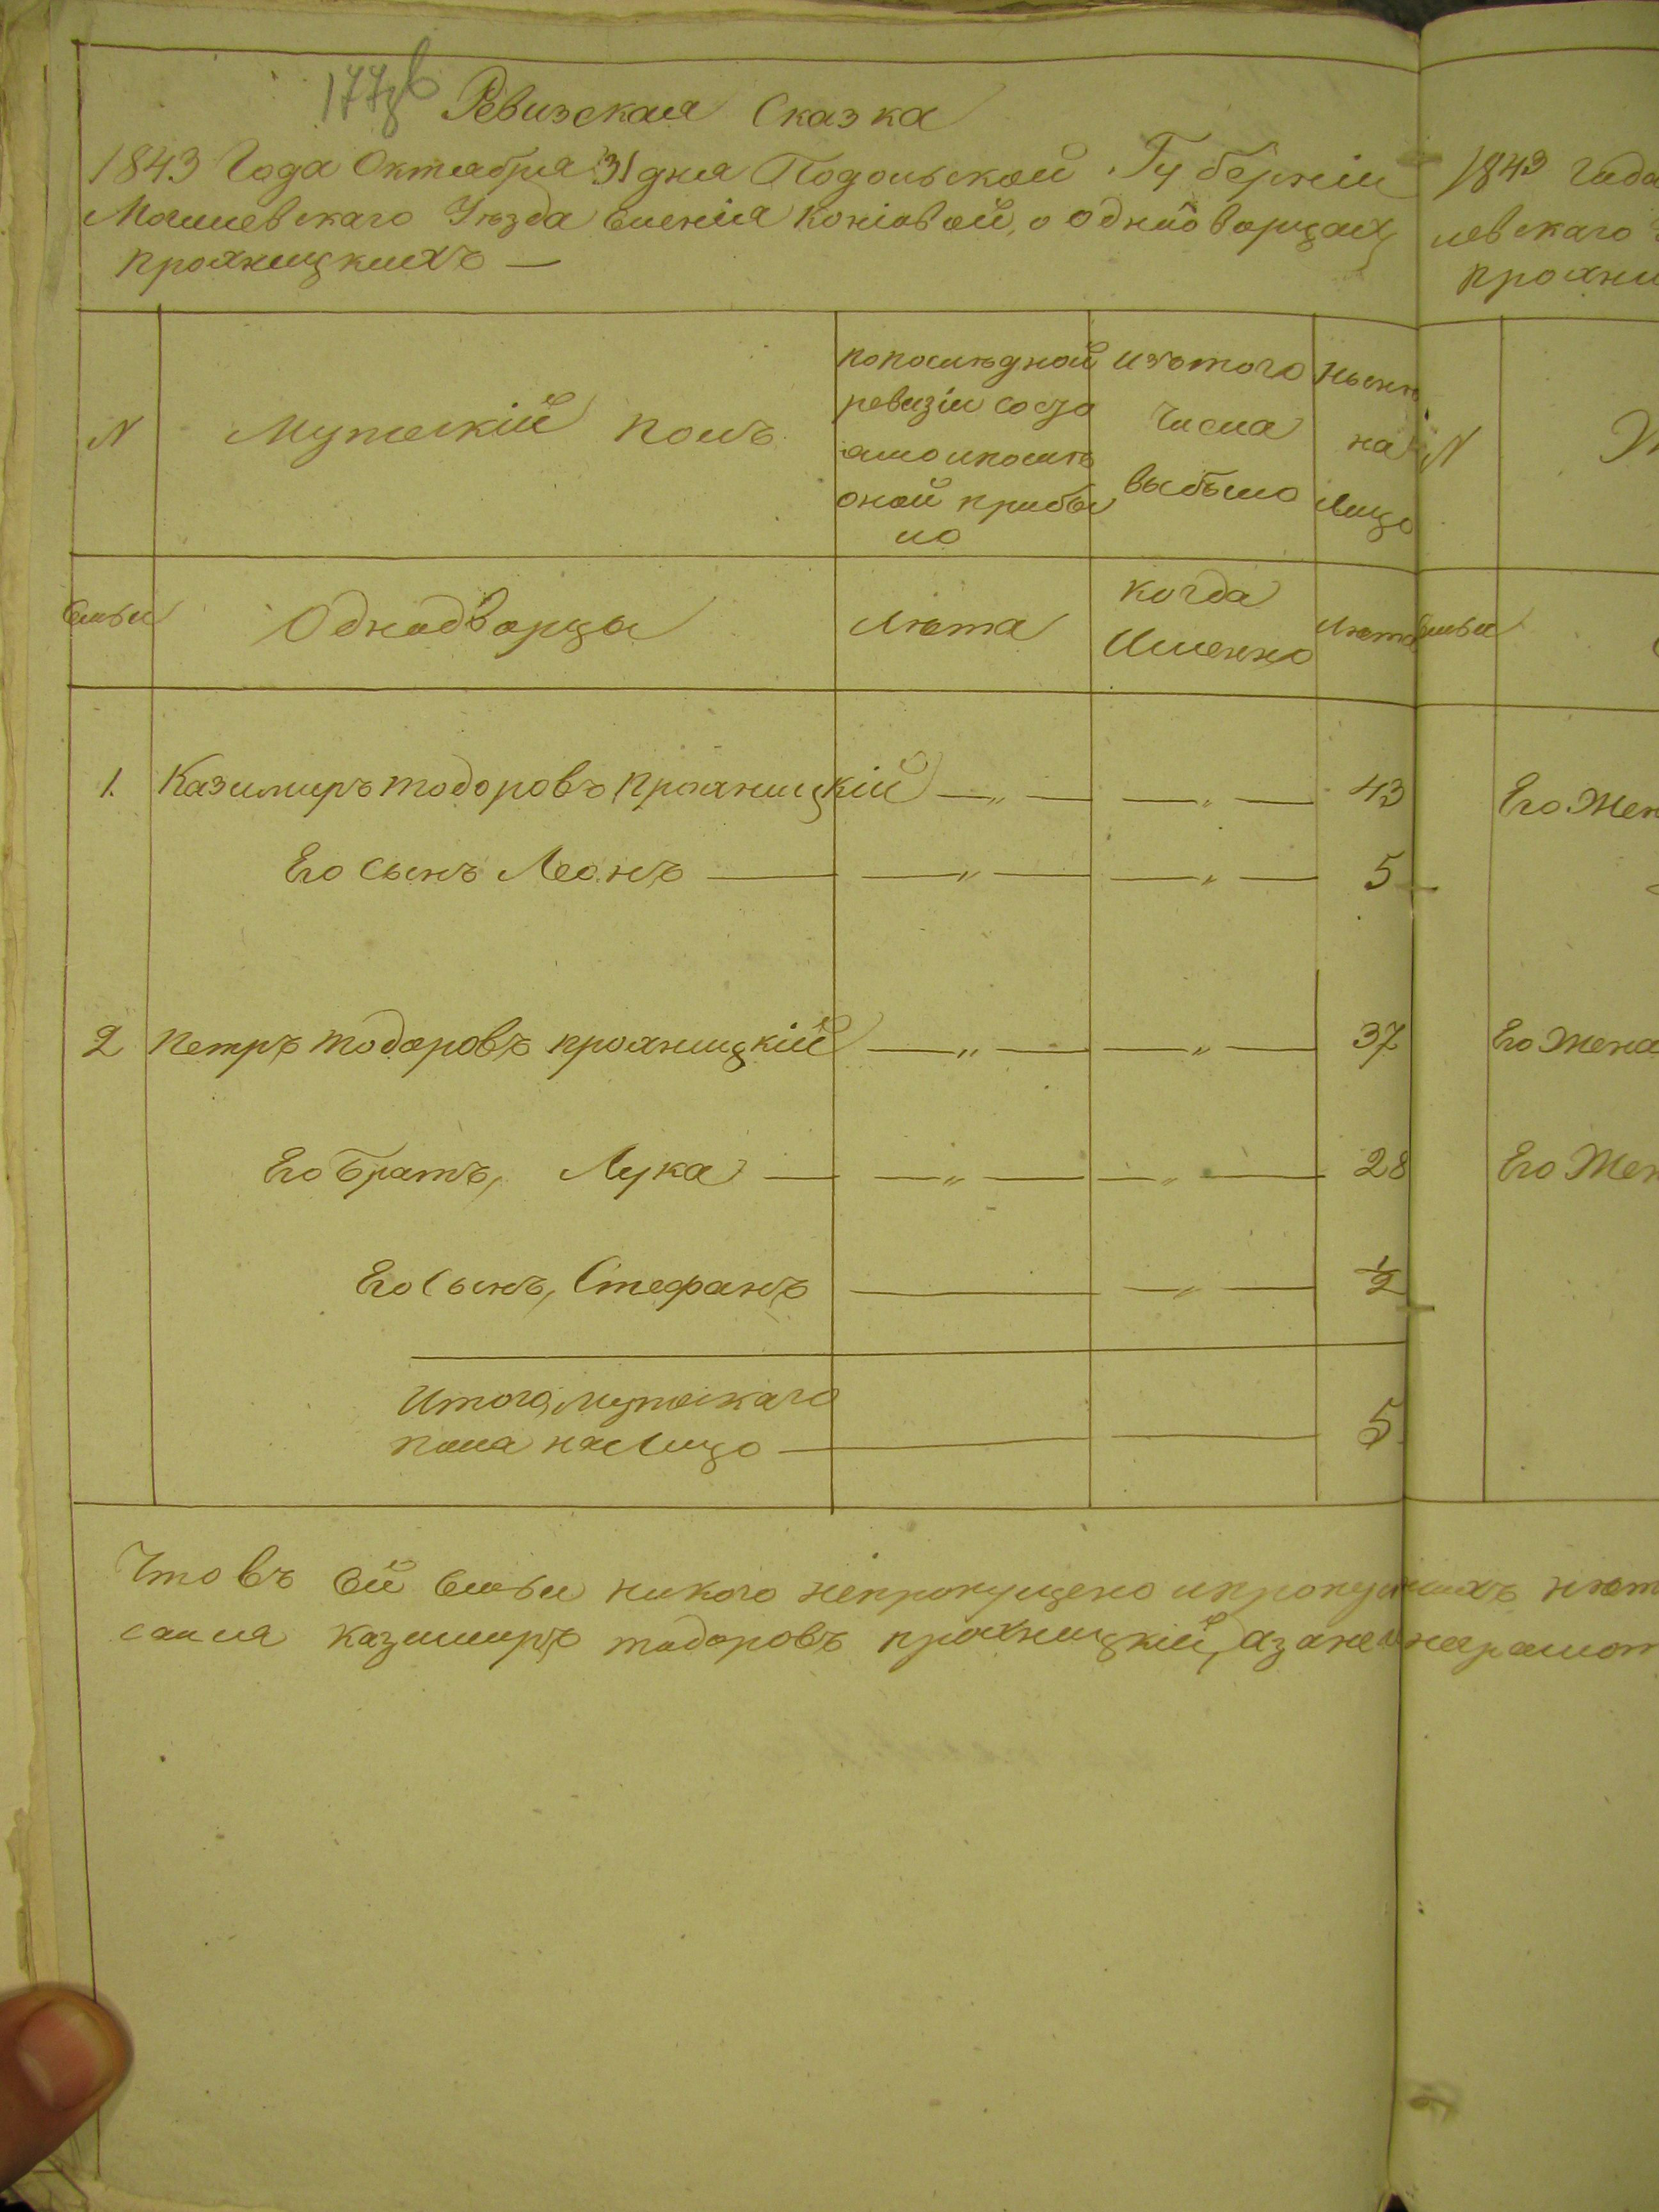 177зв
Ревизская Сказка
1843 Года Октября 31 дня Подольской Губерніи
Могилевскаго Уѣзда Селенія Конiовой, о Однодворцах
Прохницкихъ —
N
Мужескій полъ
попослѣдной
ревизіи состо
яло ипослѣ
оной прибы
ло
изътого
числа
выбыло
нынѣ
на
лицо
Семьи
Однодворцы
Лѣта
Когда
Именно
Лѣта
1. Казимиръ Тодоровъ Прохницкій — „ — — „ — 43
Его Сынъ Леонъ — — „ — — „ — 5
2 Петръ Тодоровъ Прохницкій — „ — — „ — 37
Его Братъ, Лука — — „ — — „ — 28
Его Сынъ, Стефанъ — — „ — 1/2
Итого, мужескаго
пола налицо — — — 5
Что въ сей Семьи никого непропущено ипропущ нѣт
Казимиръ Тодоровъ Прохницкій, а
1843 Года
левскаго
Прохни
N
Семьи
Его Жен
Его Жена
Его Жен